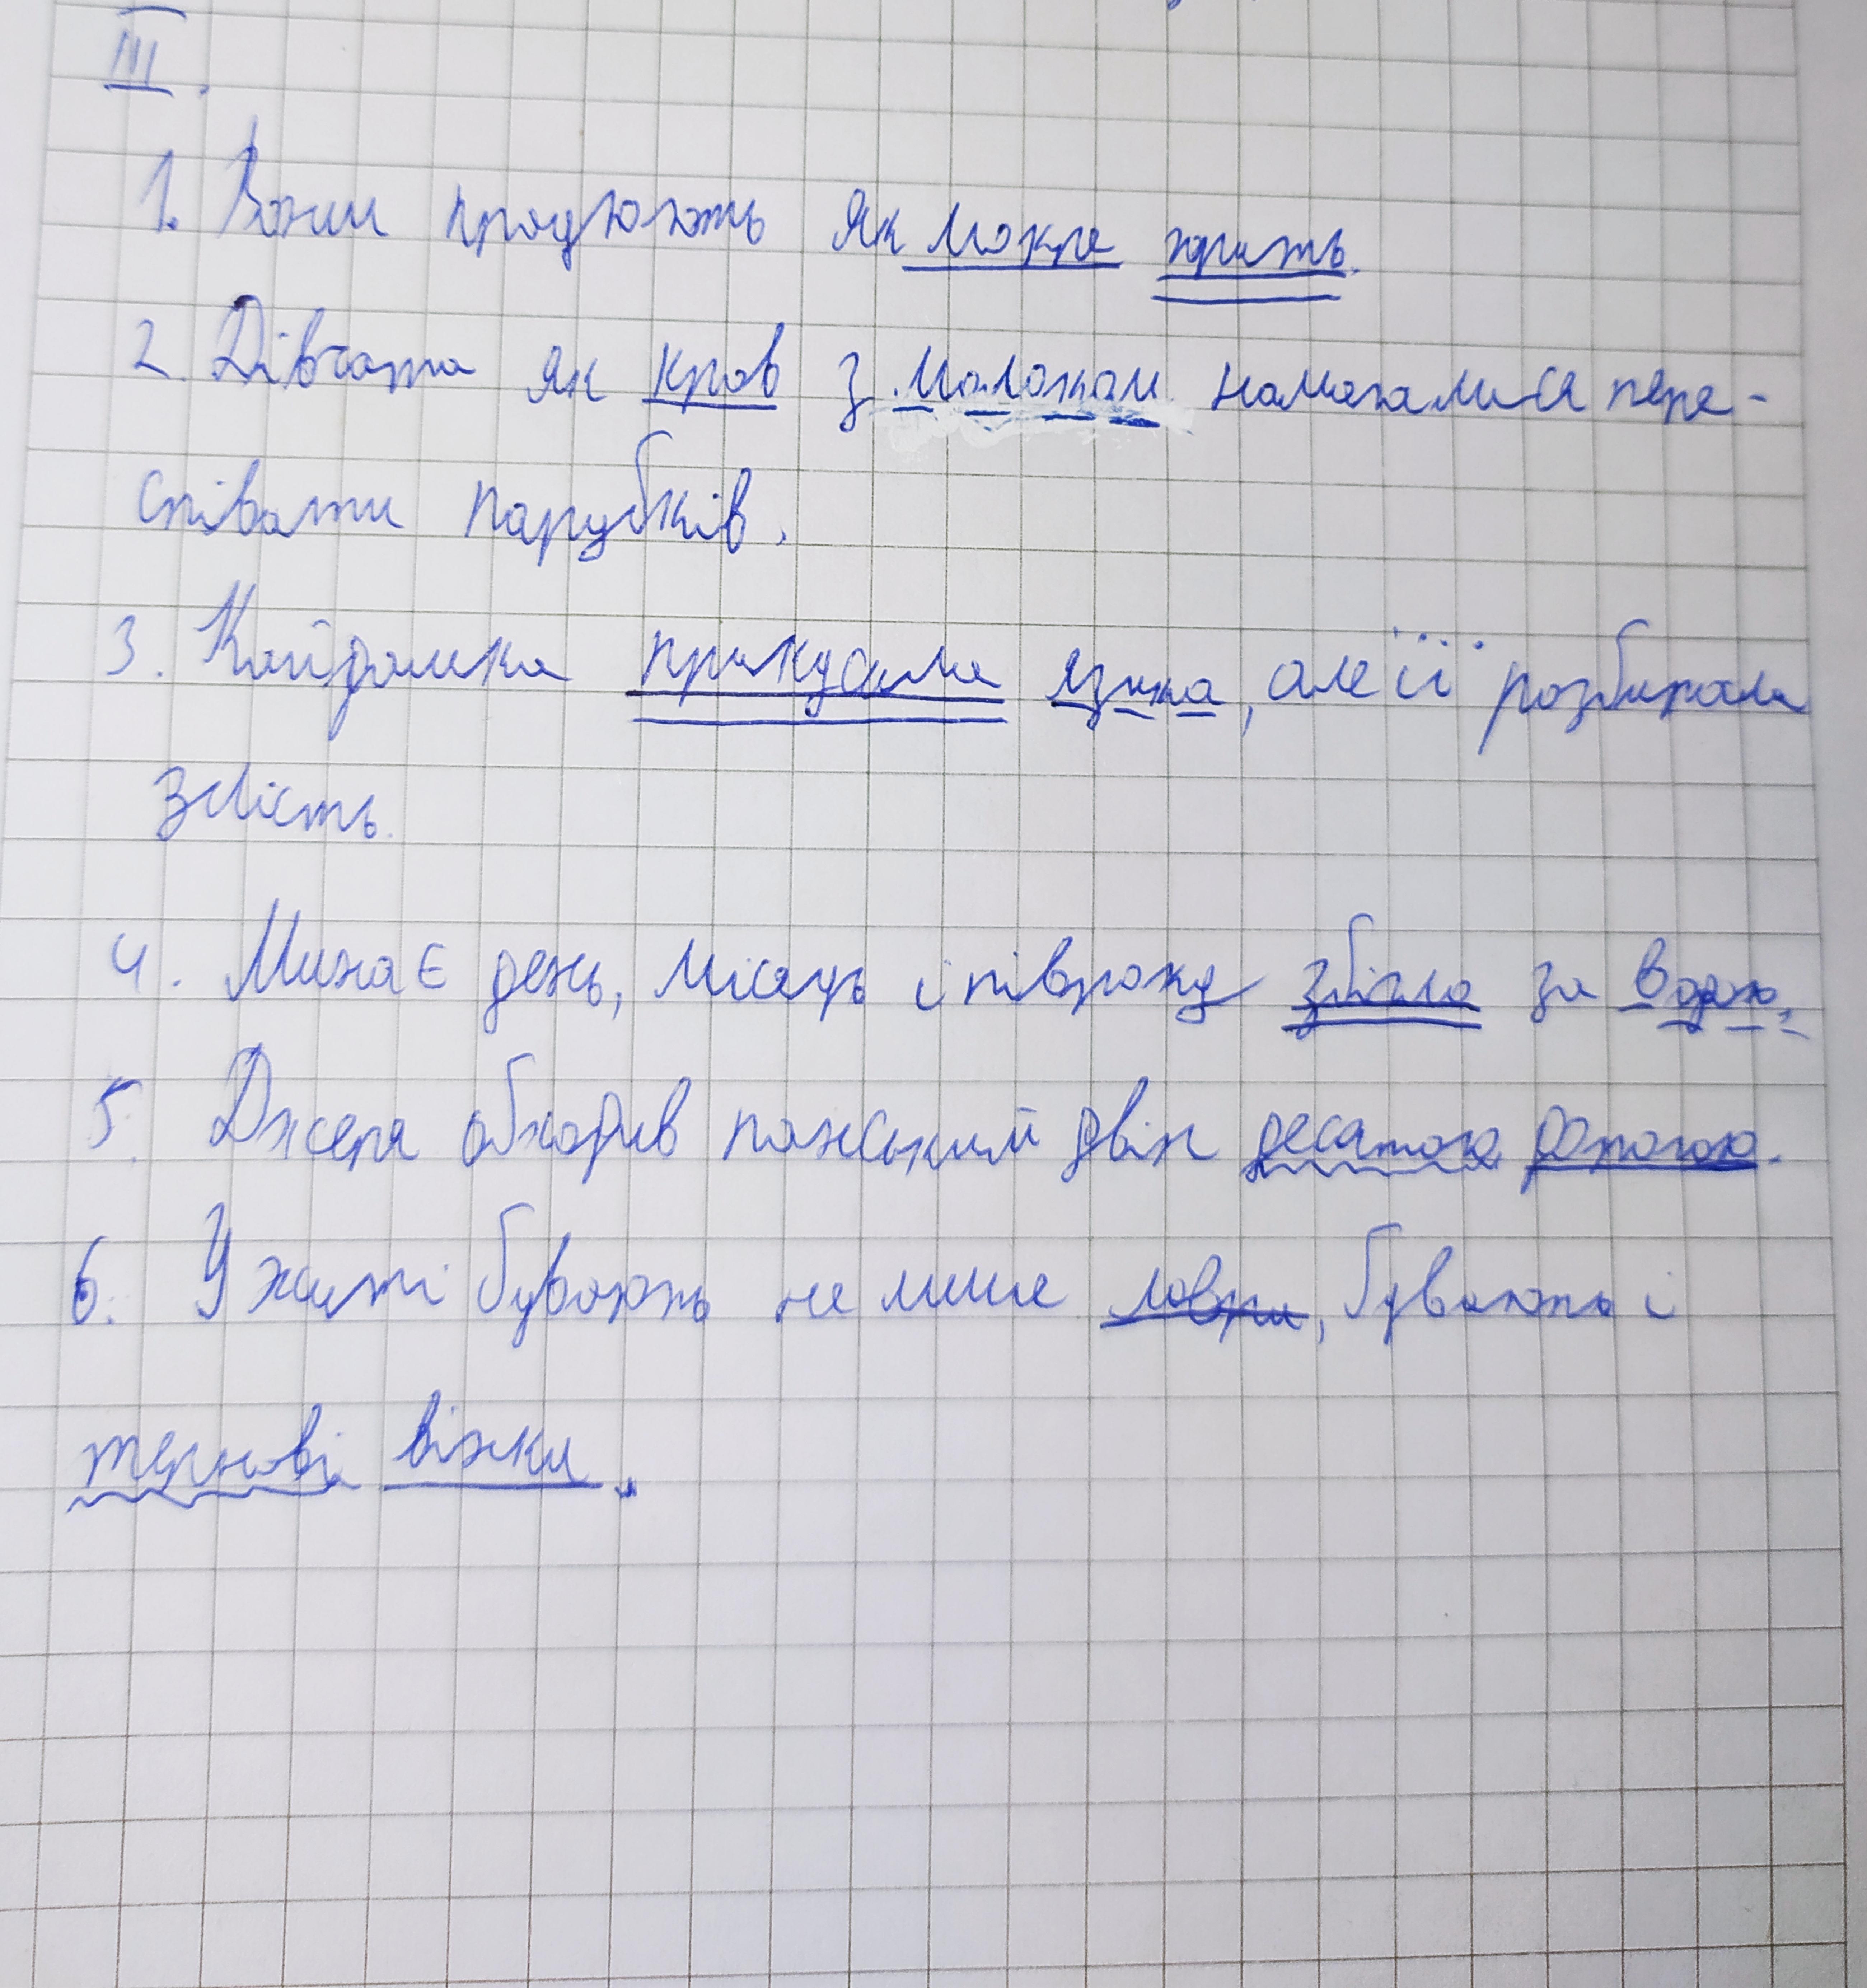 III.
1. Вони працюють як мокре горить.
2. Дівчата як кров з молоком намагалися пере-
співати парубків.
3. Кайдашиха прикусила язика, але її розбирала
злість.
4. Минає день, місяць і півроку збігло за водою.
5. Джеря обходив панський двір десятою дорогою.
6. У житті бувають не лише лаври, бувають і
тернові вінки.